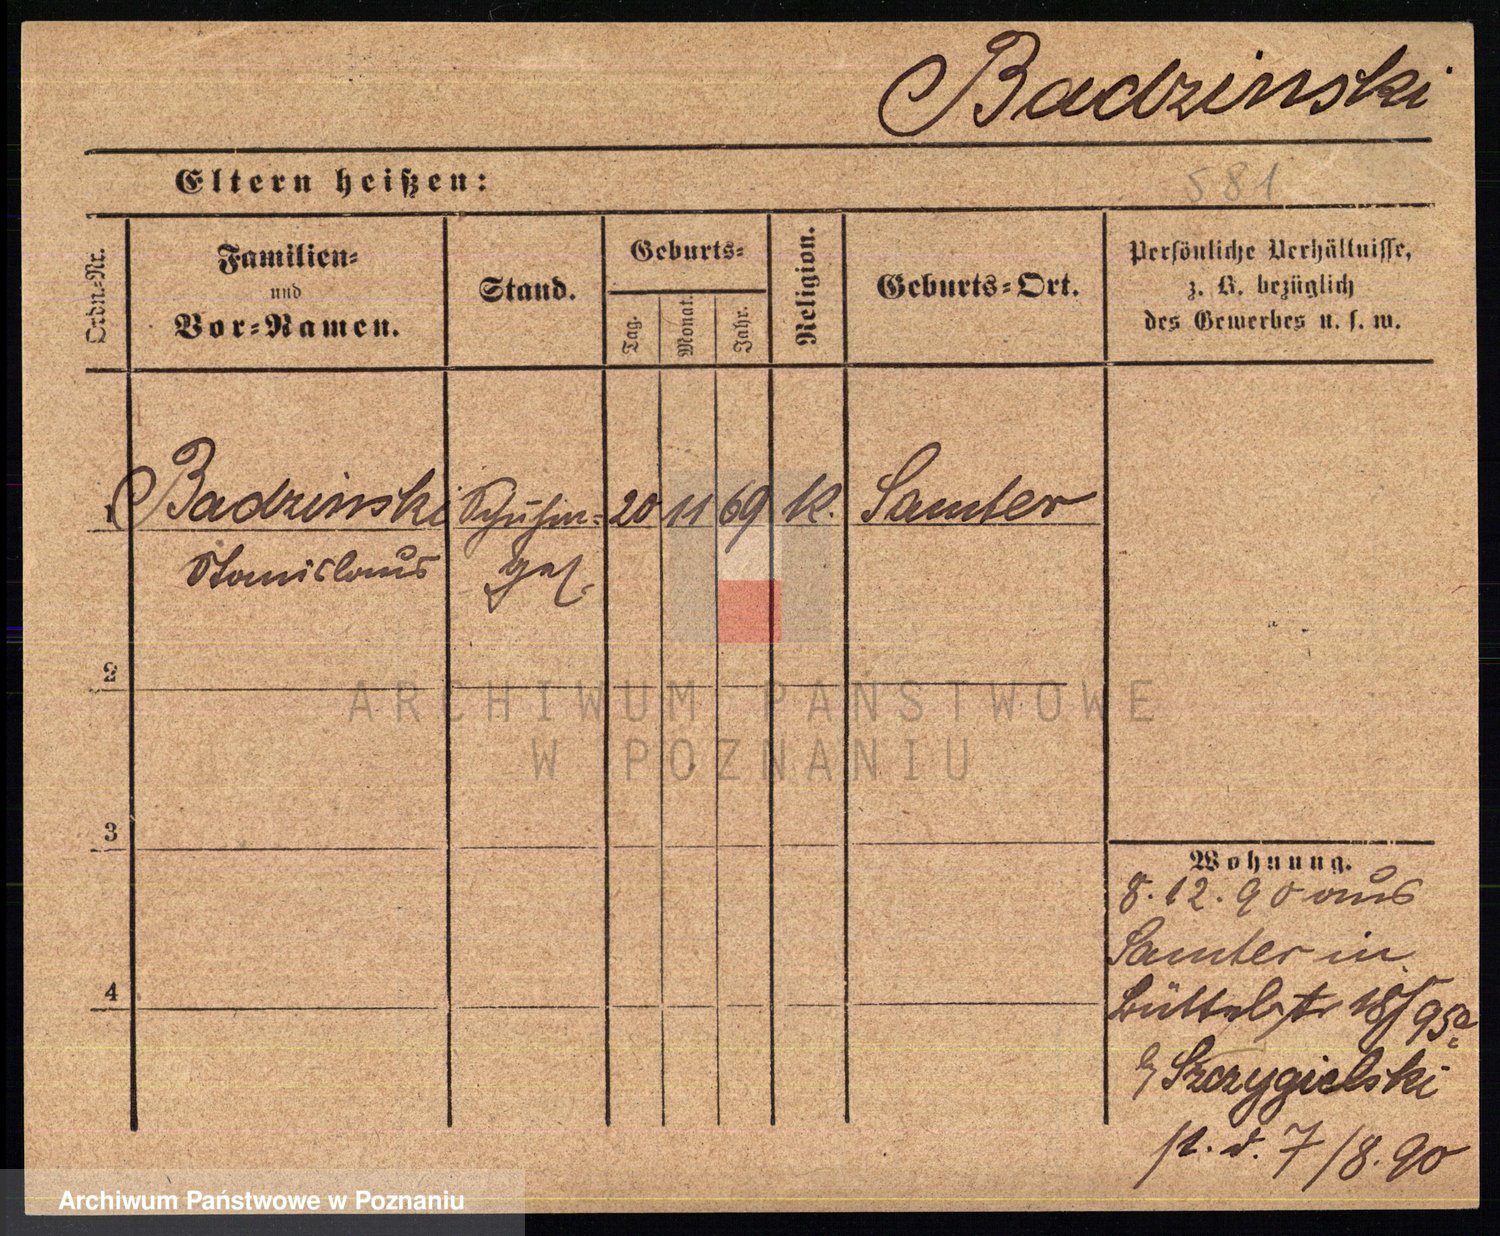 Badzinski
Eltern heißen:
581
Ordn.-Nr.
Familien-
und
Vor-Namen.
Stand.
Geburts-
Tag.
Monat.
Jahr.
Religion.
Geburts-Ort.
Persönliche Verhältnisse,
z. B. bezüglich
des Gewerbes u. s. w.
1 Badzinski Schuhm- 20 11 69 k. Samter
Stanislaus ges.
2
ARCHIWUM PAŃSTWOWE
W POZNANIU
3
4
Wohnung.
8.12.90 aus
Samter in
Büttelstr 18/
b/ Szczygielski
7/8.90
Archiwum Państwowe w Poznaniu